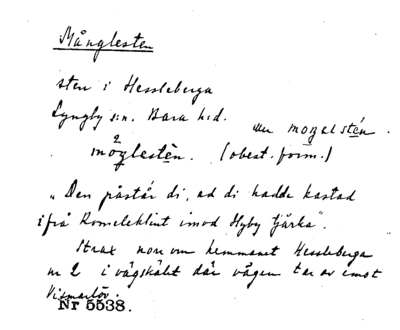 Månglesten
sten i Hessleberga
Lyngby s:n. Bara h:d.
mogelstén.
möglestèn. (obest. form.)
"Den påstår di, ad di hadde kastad
ifrå Romeleklint imod Hyby kjårka".
Strax norr om hemmanet Hessleberga
nr 2 i vägskälet där vägen tar av emot
Vismarlöv.
Nr 5538.